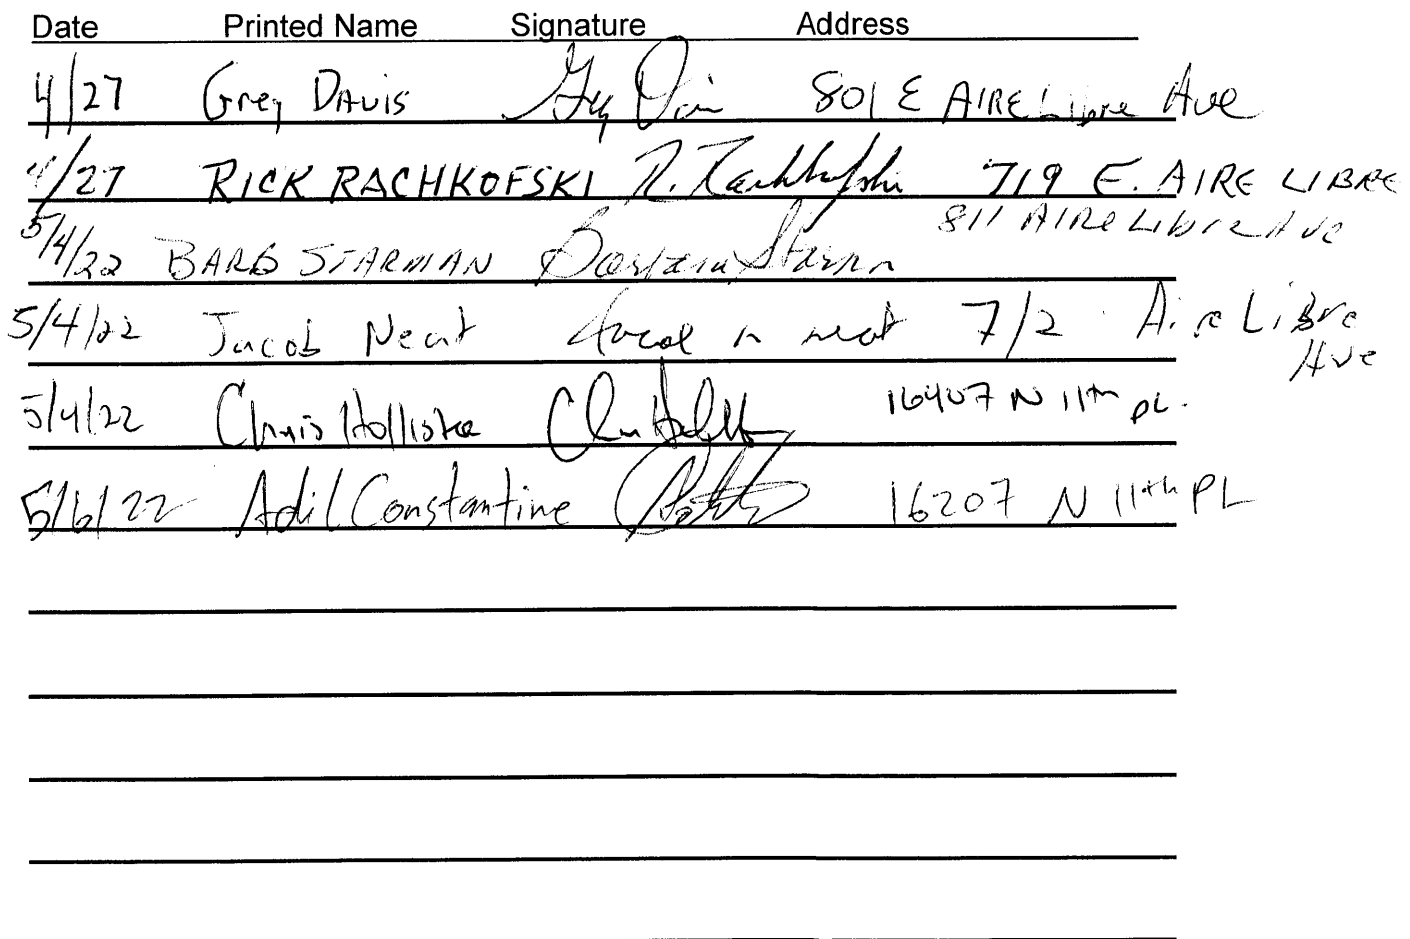 Date Printed Name Signature Address
4/27 Greg Davis Greg Davis 801 E AIRE Libre Ave
4/27 RICK RACHKOFSKI R. Rachkofski 719 E. AIRE LIBRE
5/4/22 BARB STARMAN Barbara Starman 811 AIRE Libre Ave
5/4/22 Jacob Neat Jacob n neat 712 Aire Libre
Ave
5/4/22 Chris Hollister 16407 N 11th PL.
5/6/22 Adil Constantine 16207 N 11th PL